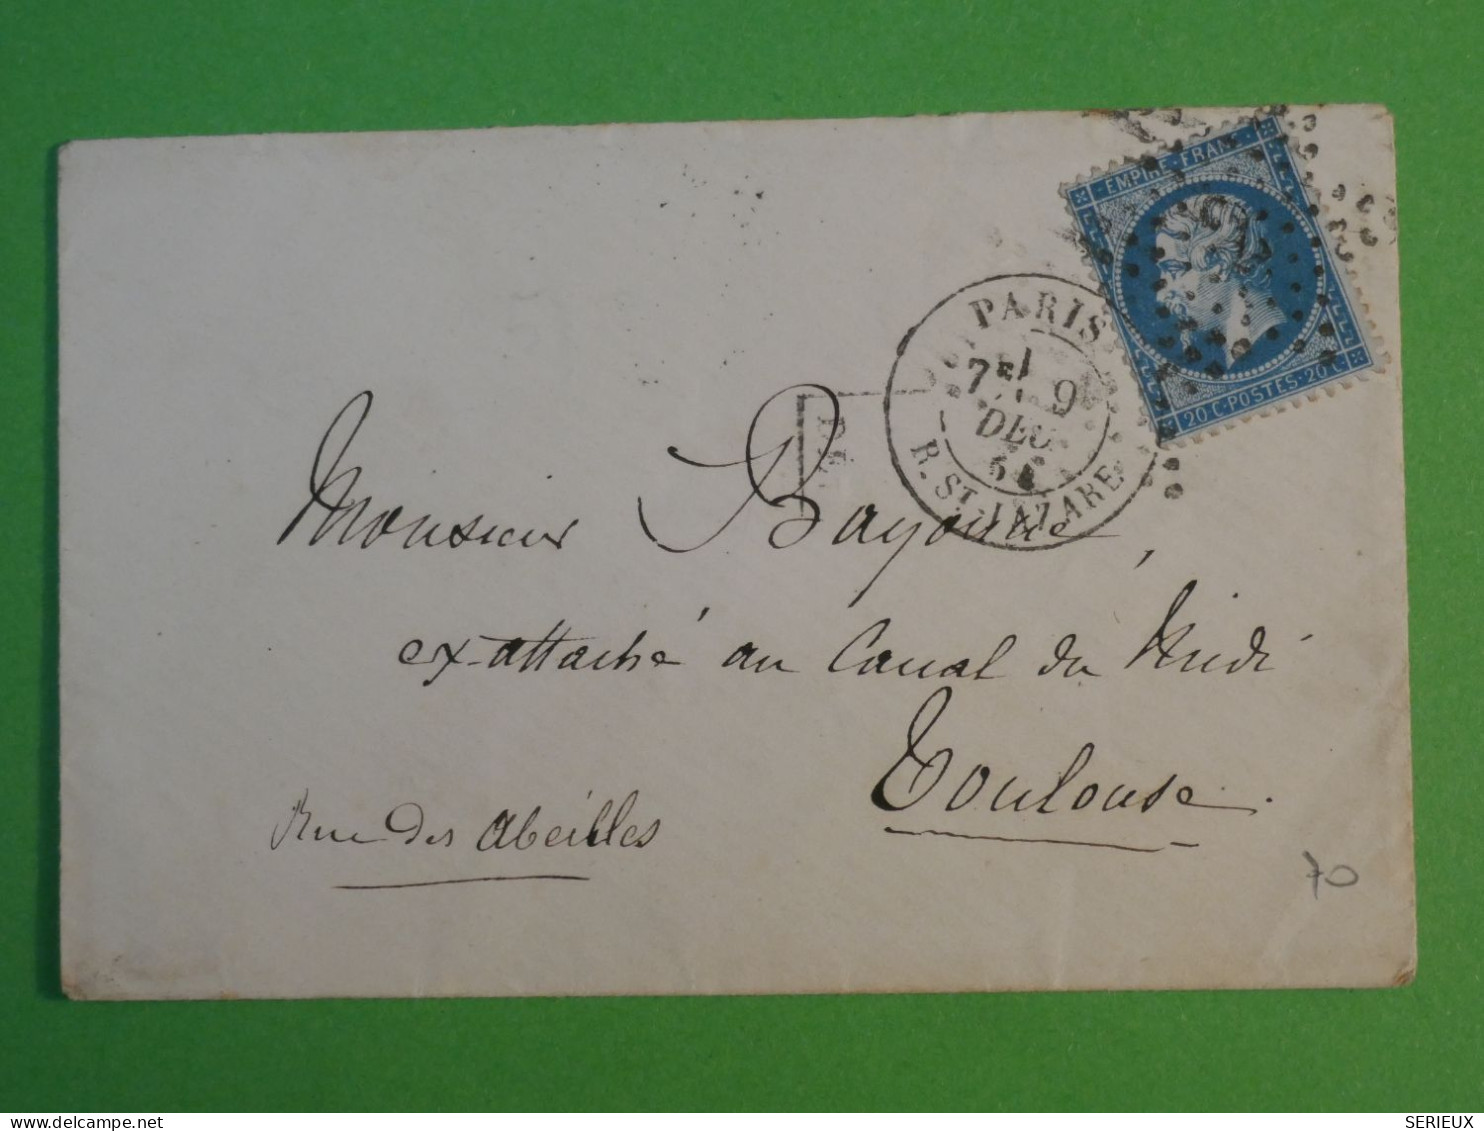 EMPIRE·FRANC
20·C·POSTES·20·C
PARIS
7E 9
DÉC
R. ST. LAZARE
Monsieur Bayonne,
ex-attaché au Canal du Midi
Toulouse.
Rue des Abeilles
70
SERIEUX